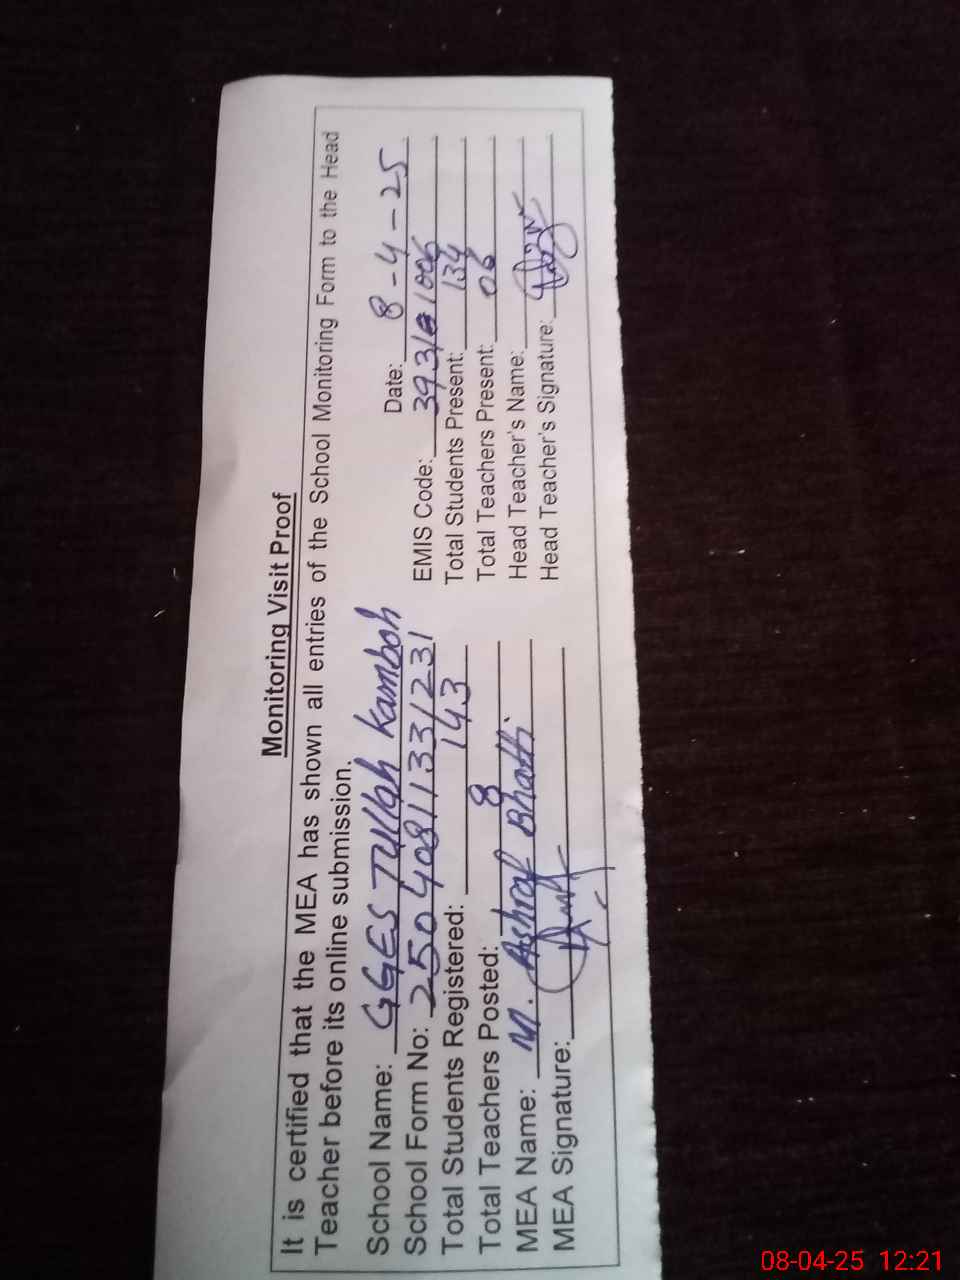 Monitoring Visit Proof
It is certified that the MEA has shown all entries of the School Monitoring Form to the Head
Teacher before its online submission.
School Name: GGES Tullah Kamboh Date: 8-4-25
School Form No: 25040811331231 EMIS Code:
Total Students Registered: 143 Total Students Present: 134
Total Teachers Posted: 8 Total Teachers Present: 06
MEA Name: M. Ashraf Bhatti Head Teacher's Name:
MEA Signature: Head Teacher's Signature:
08-04-25 12:21